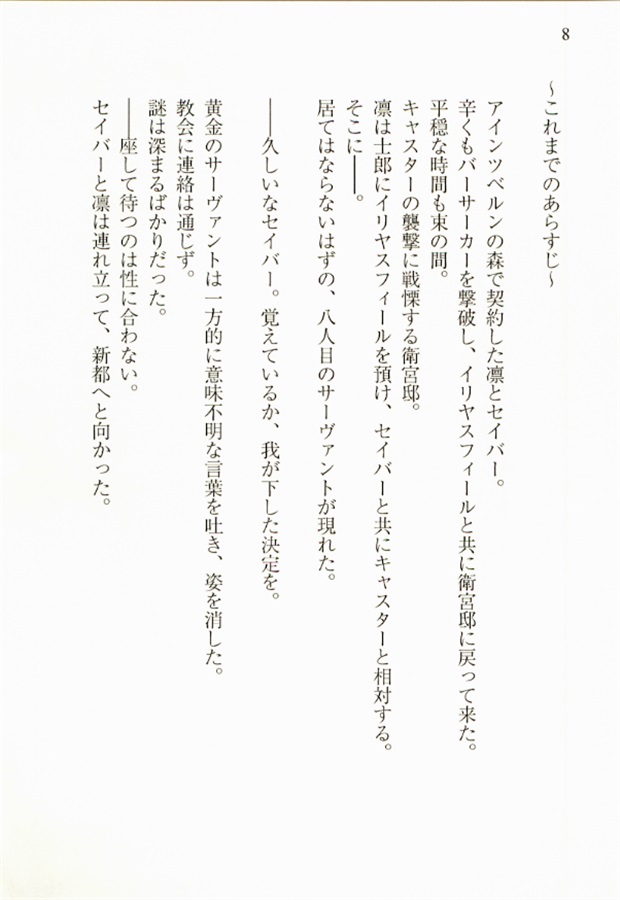 8
～これまでのあらすじ～
アインツベルンの森で契約した凛とセイバー。
辛くもバーサーカーを撃破し、イリヤスフィールと共に衛宮邸に戻って来た。
平穏な時間も束の間。
キャスターの襲撃に戦慄する衛宮邸。
凛は士郎にイリヤスフィールを預け、セイバーと共にキャスターと相対する。
そこに――。
居てはならないはずの、八人目のサーヴァントが現れた。
――久しいなセイバー。覚えているか、我が下した決定を。
黄金のサーヴァントは一方的に意味不明な言葉を吐き、姿を消した。
教会に連絡は通じず。
謎は深まるばかりだった。
――座して待つのは性に合わない。
セイバーと凛は連れ立って、新都へと向かった。